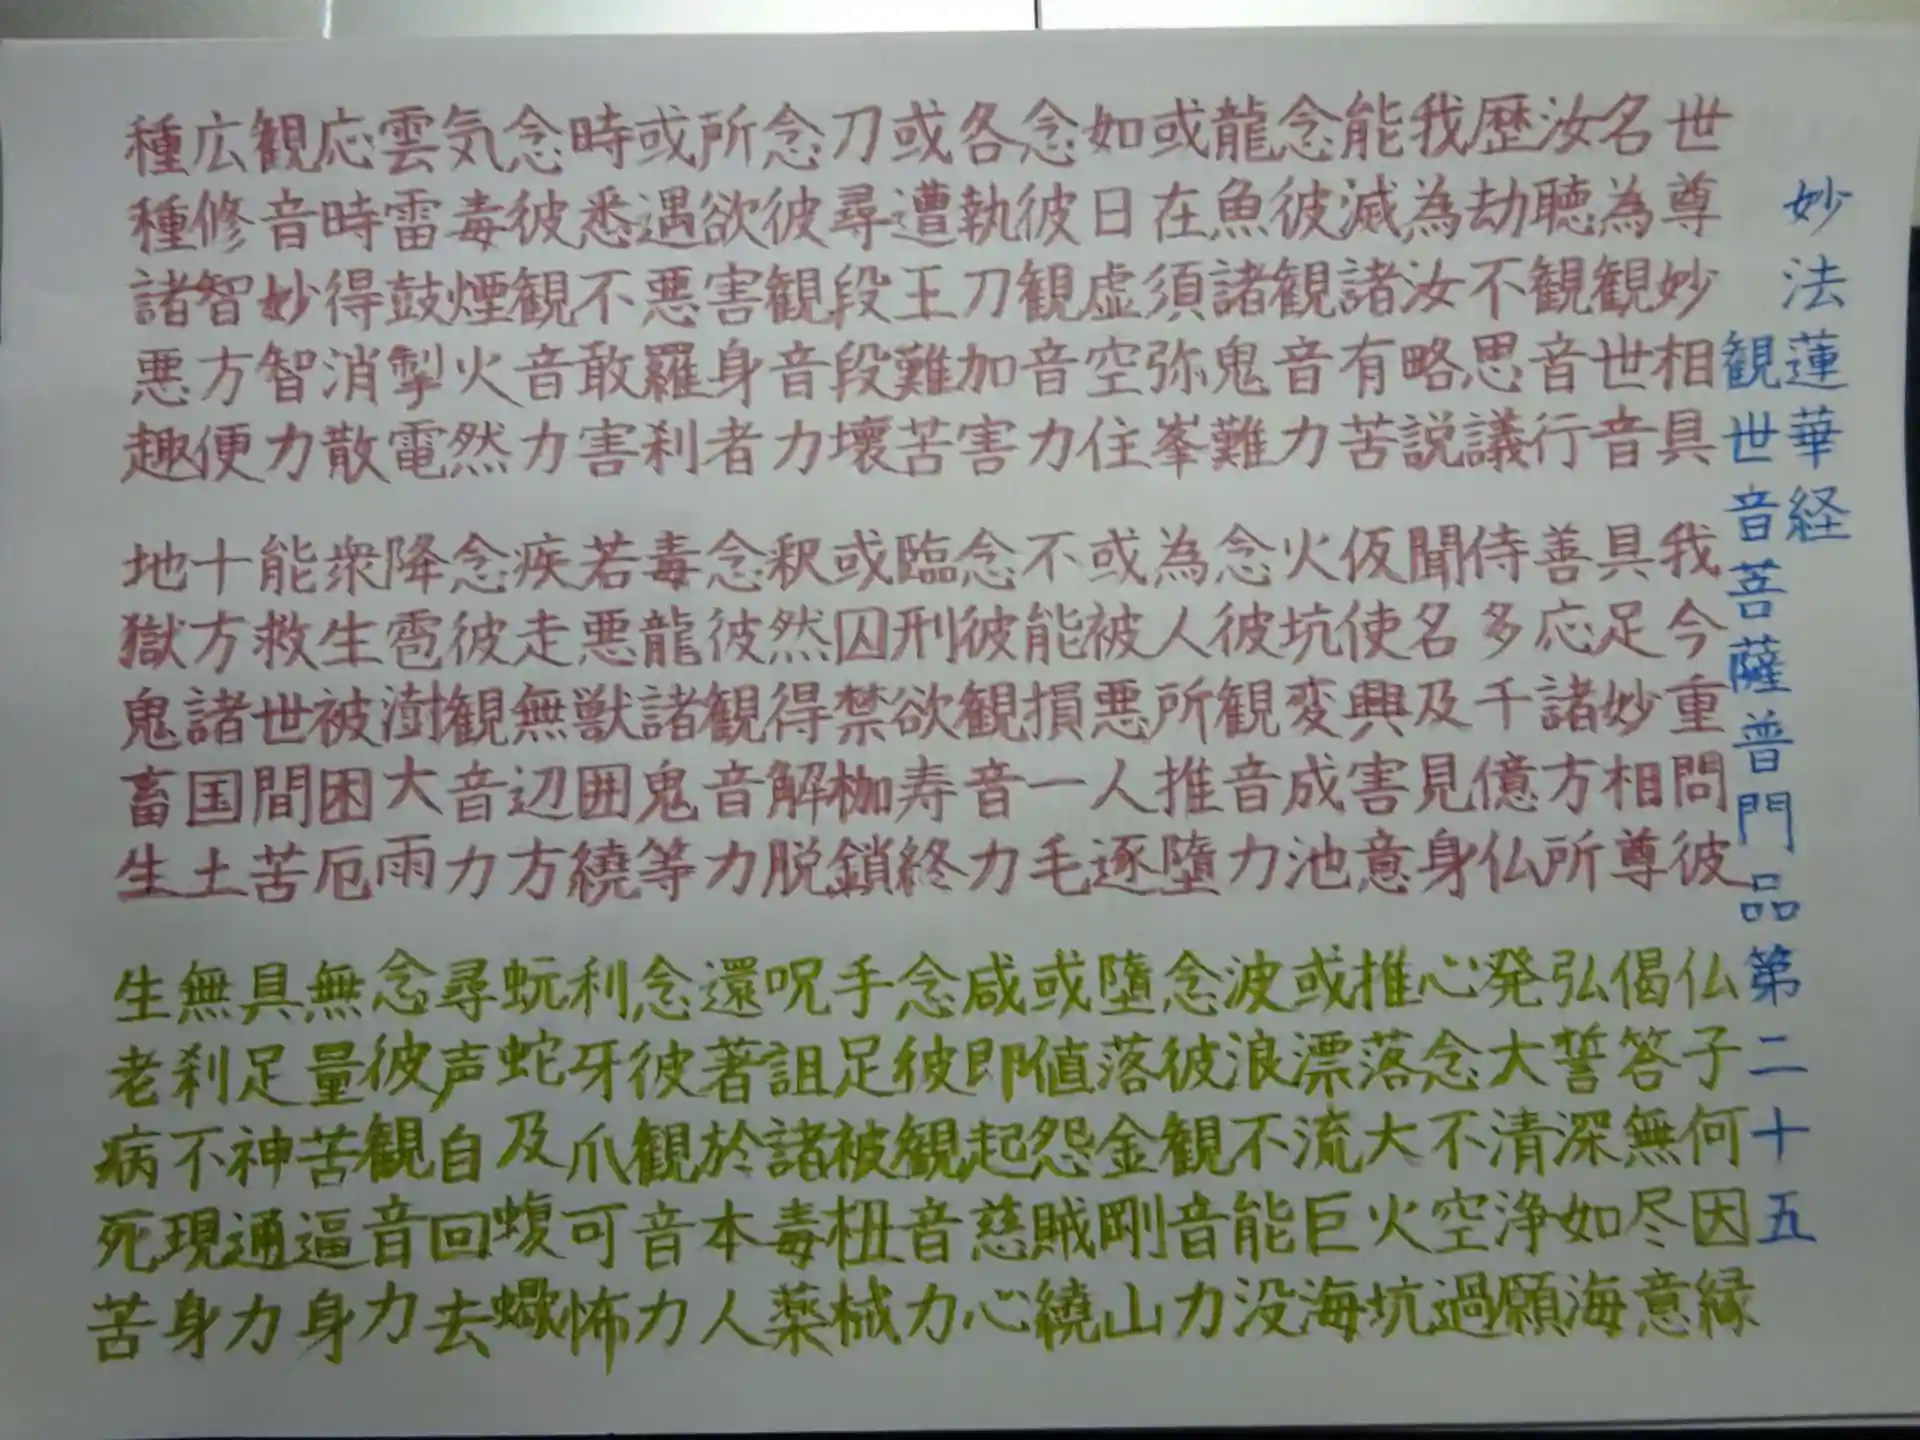 妙法蓮華経
観世音菩薩普門品第二十五
世尊妙相具 我今重問彼 仏子何因縁
名為観世音 具足妙相尊 偈答無尽意
汝聴観音行 善応諸方所 弘誓深如海
歴劫不思議 侍多千億仏 発大清浄願
我為汝略説 聞名及見身 心念不空過
能滅諸有苦 仮使興害意 推落大火坑
念彼観音力 火坑変成池 或漂流巨海
龍魚諸鬼難 念彼観音力 波浪不能没
或在須弥峯 為人所推墮 念彼観音力
如日虚空住 或被悪人逐 墮落金剛山
念彼観音力 不能損一毛 或値怨賊繞
各執刀加害 念彼観音力 咸即起慈心
或遭王難苦 臨刑欲寿終 念彼観音力
刀尋段段壞 或囚禁枷鎖 手足被杻械
念彼観音力 釈然得解脱 呪詛諸毒薬
所欲害身者 念彼観音力 還著於本人
或遇悪羅刹 毒龍諸鬼等 念彼観音力
時悉不敢害 若悪獣囲繞 利牙爪可怖
念彼観音力 疾走無辺方 蚖蛇及蝮蠍
気毒煙火然 念彼観音力 尋声自回去
雲雷鼓掣電 降雹澍大雨 念彼観音力
応時得消散 衆生被困厄 無量苦逼身
観音妙智力 能救世間苦 具足神通力
広修智方便 十方諸国土 無刹不現身
種種諸悪趣 地獄鬼畜生 生老病死苦